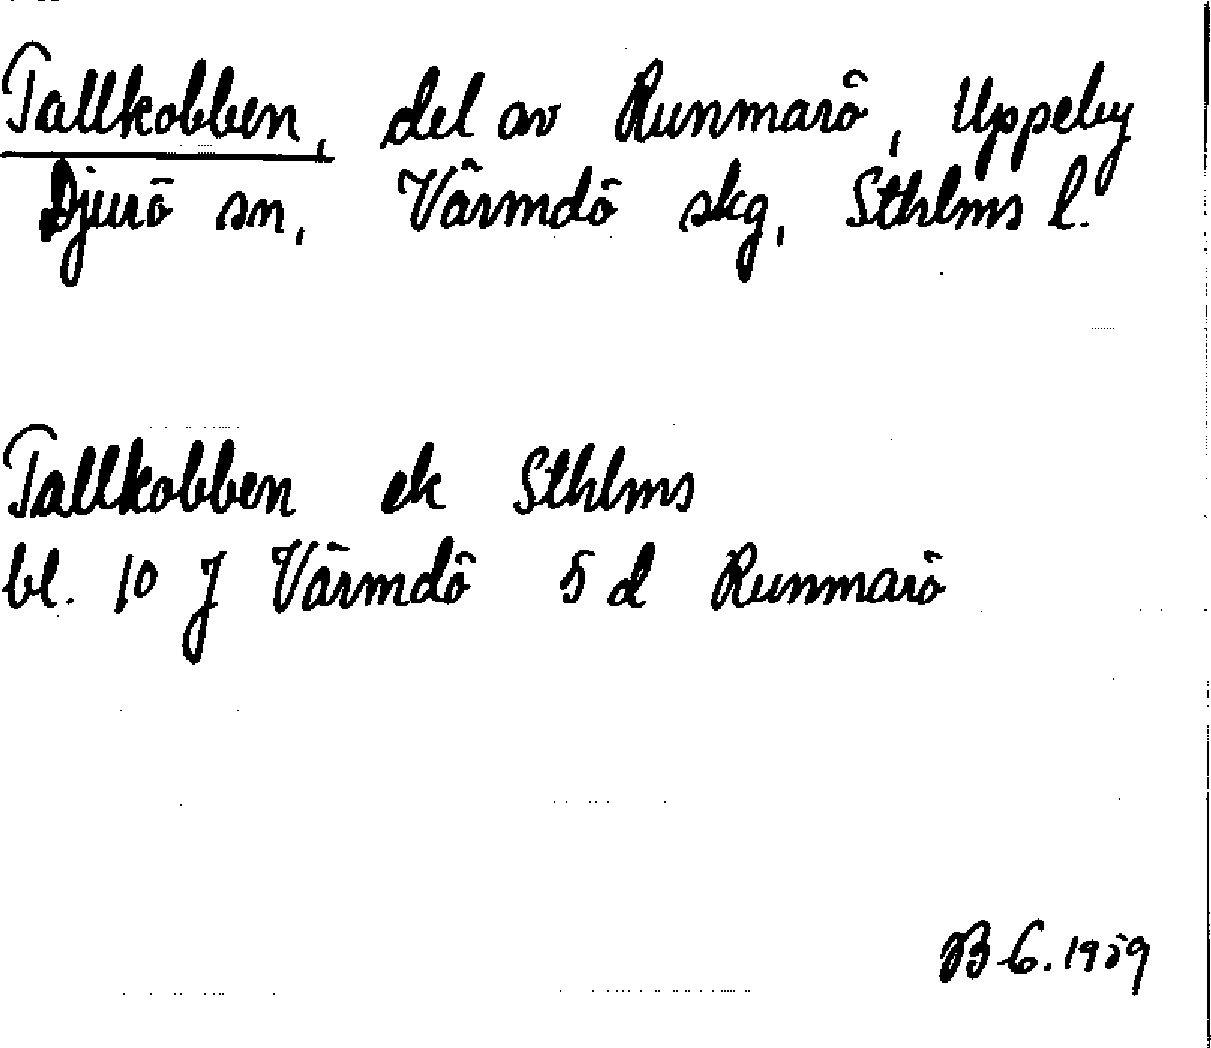 Tallkobben, del av Runmarö, Uppeby
Djurö sn, Värmdö skg, Sthlms l.
Tallkobben ek Sthlms
bl. 10 J Värmdö 5 d Runmarö
B G. 1959